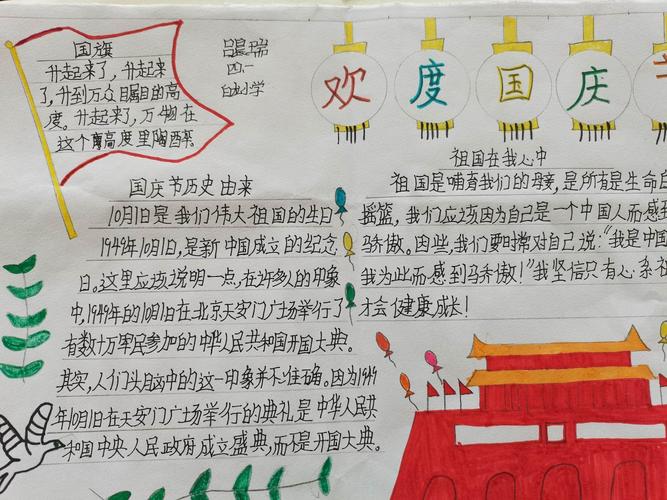 国旗
升起来了，升起来
了，升到万众瞩目的高
度。升起来了，万物在
这个高度里陶醉。
四、一
小学
欢度国庆
国庆节历史由来
10月1日是我们伟大祖国的生日
1949年10月1日，是新中国成立的纪念
日。这里应该说明一点，在许多人的印象
中，1949年的10月1日在北京天安门广场举行了
有数十万军民参加的中华人民共和国开国大典。
其实，人们头脑中的这一印象并不准确。因为1949
年10月1日在天安门广场举行的典礼是中华人民共
和国中央人民政府成立盛典，而不是开国大典。
祖国在我心中
祖国是哺育我们的母亲，是所有是生命的
摇篮，我们应该因为自己是一个中国人而感到
骄傲。因些，我们要时常对自己说："我是中国
我为此而感到骄傲！"我坚信只有心系祖
才会健康成长！